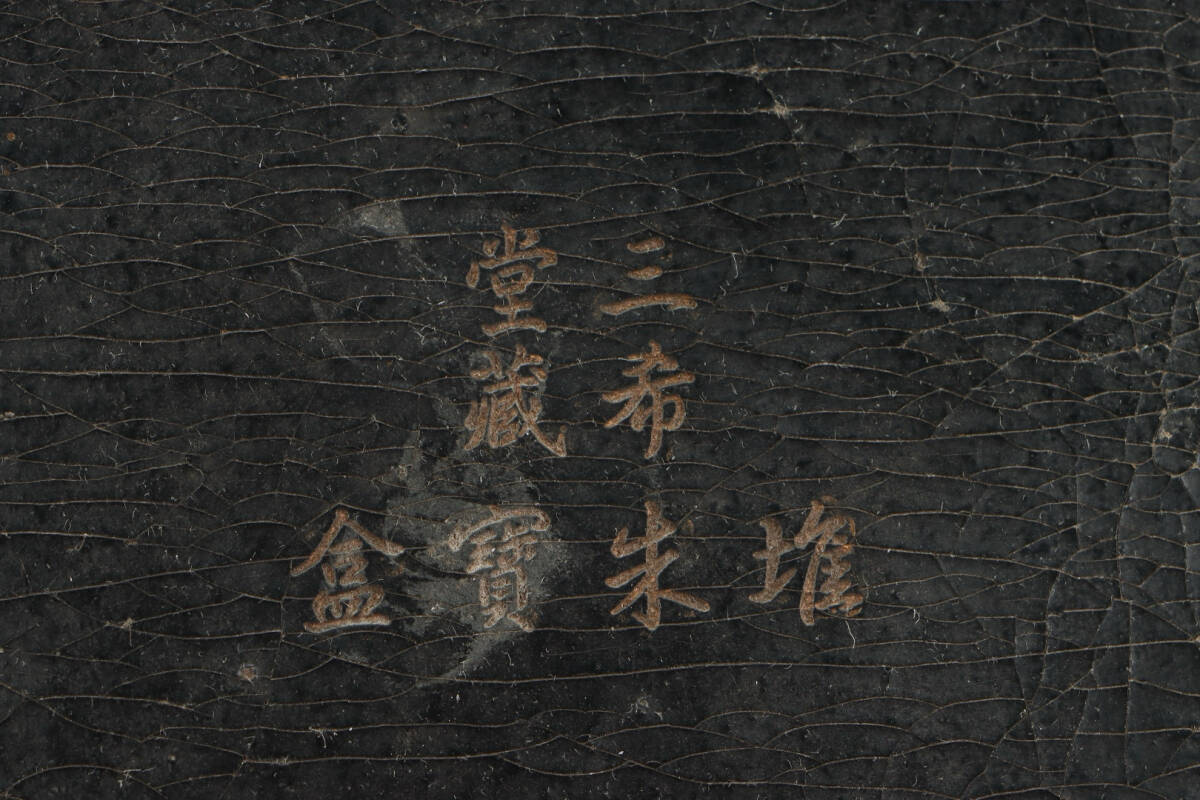 三希
堂藏
堆朱寶盒